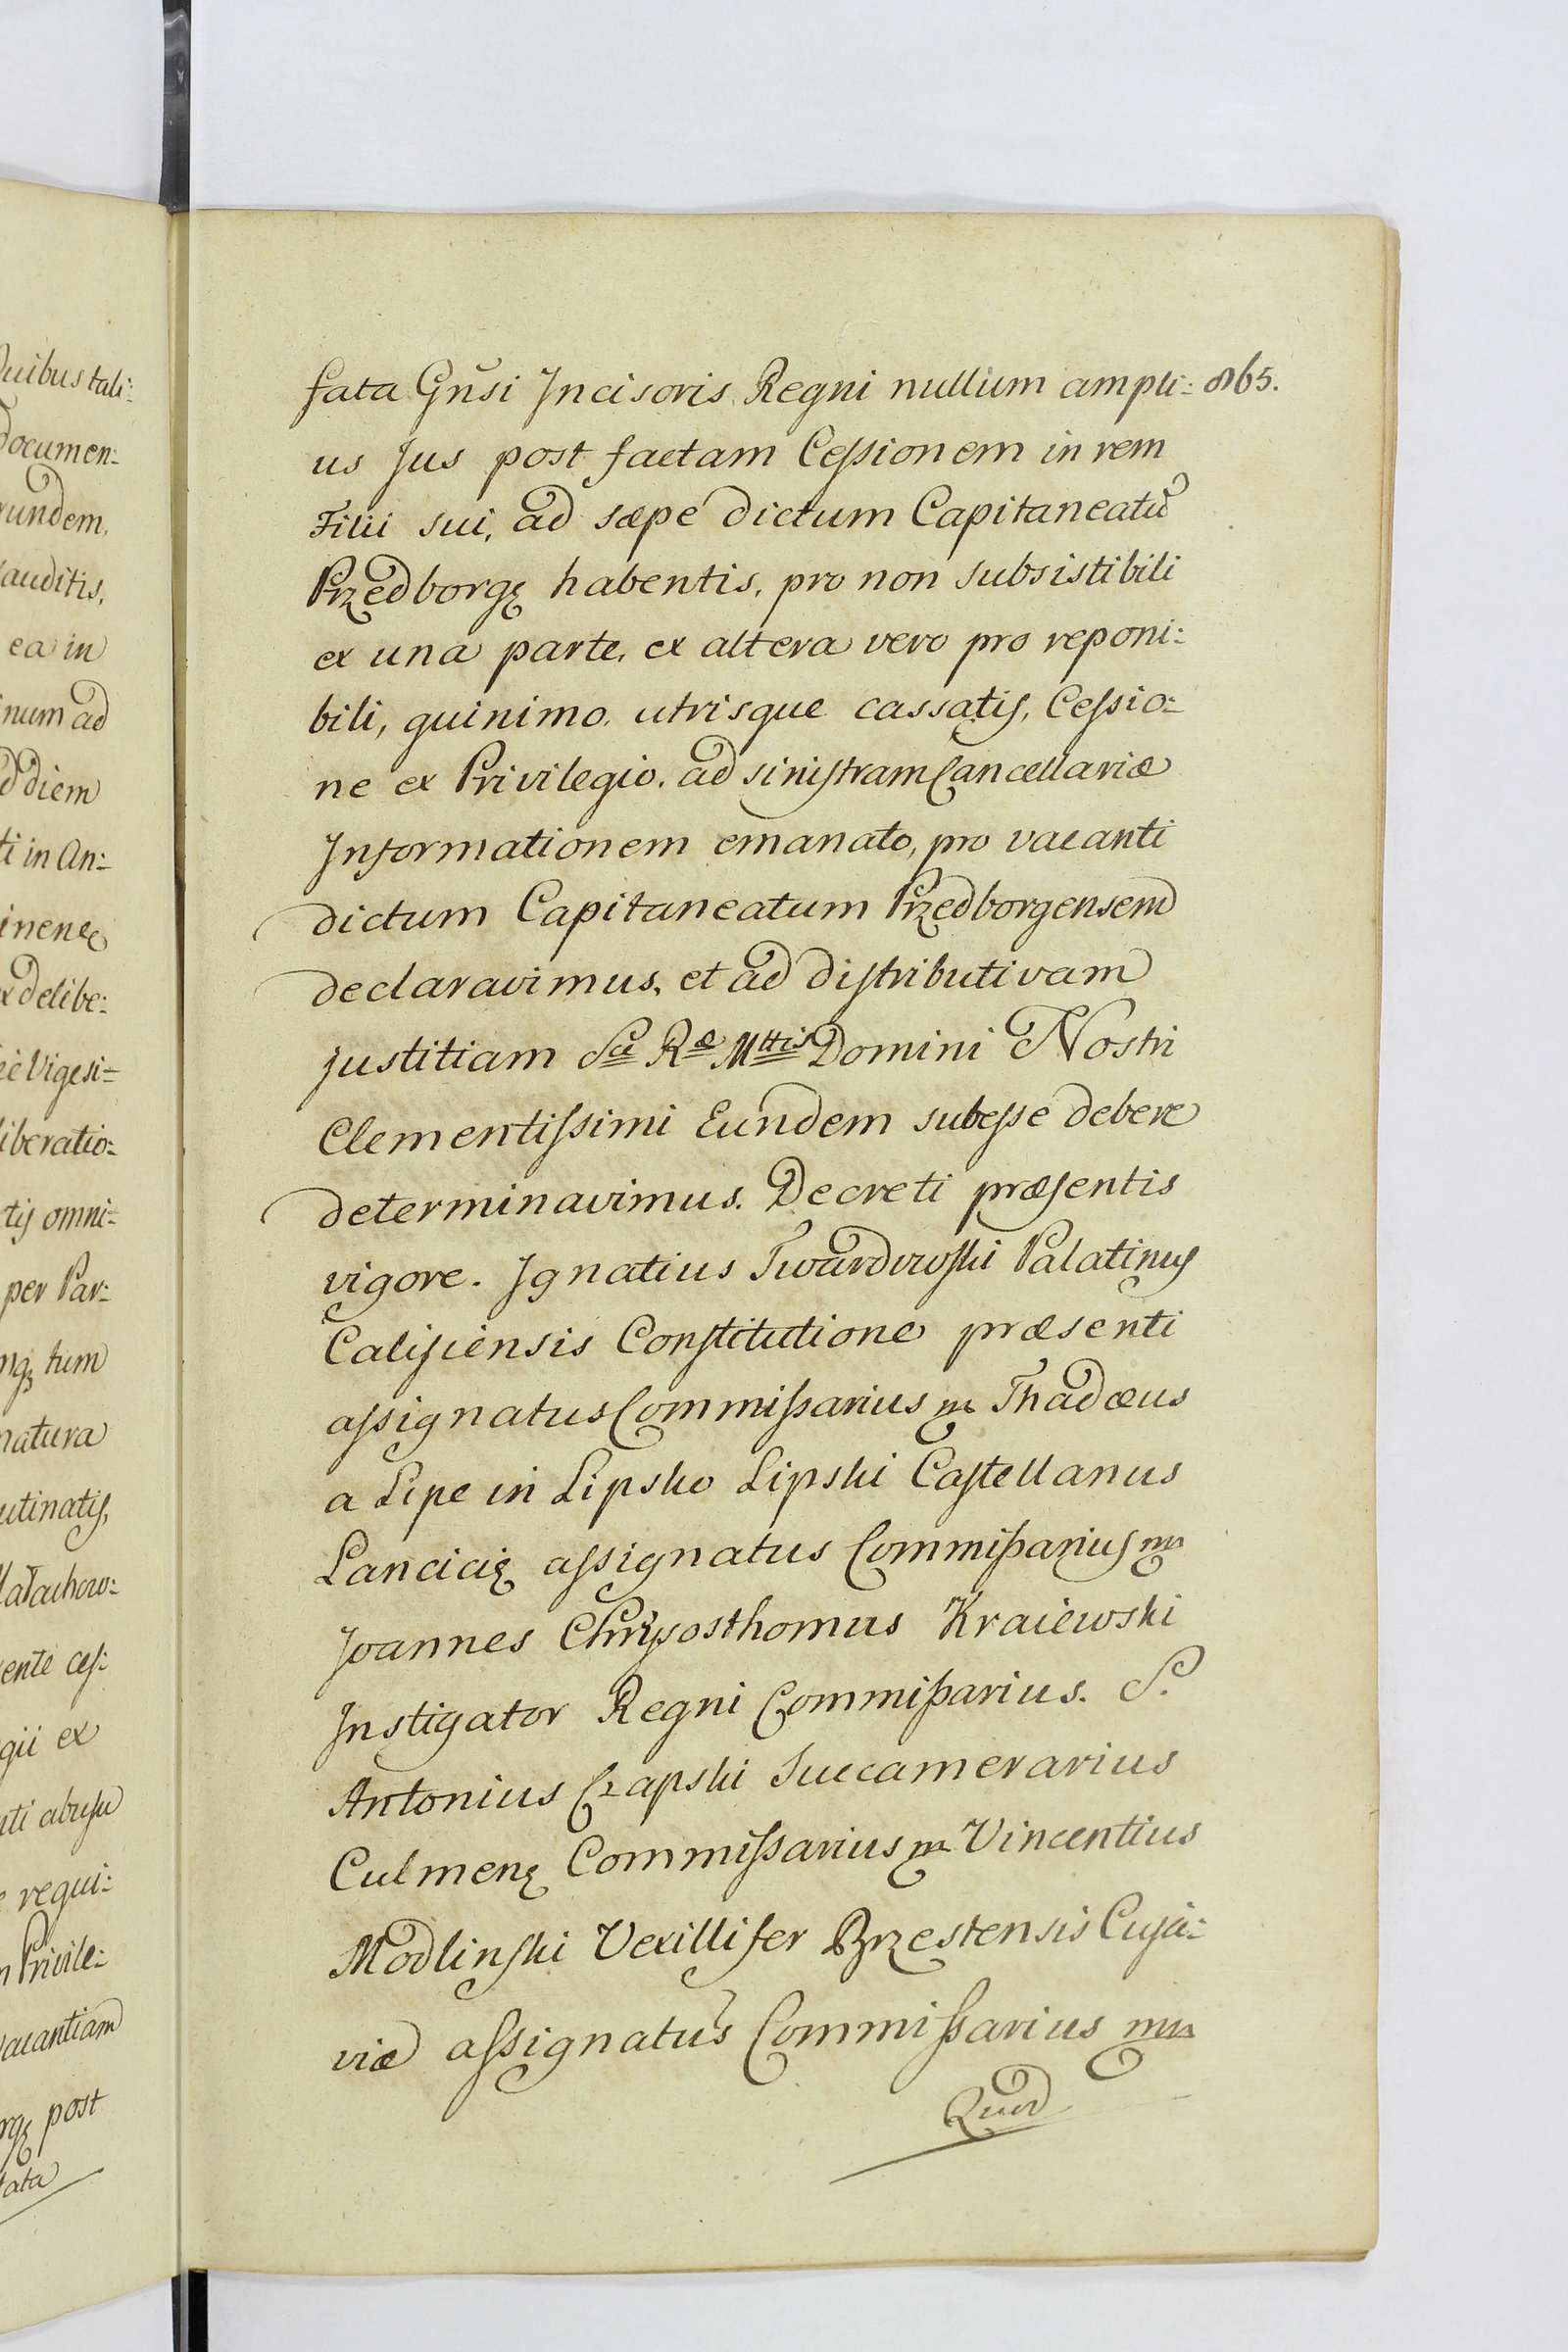 Quibus tali:
Documen:
rundem,
auditis,
ea in
inum ad
d diem
ti in An:
inene
x delibe:
Vigesi=
liberatio:
tis omni:
per Par:
nq; tum
natura
utinatis,
łachow:
ente ces:
gii ex
nti abusu
e requi:
m Privile:
vacantiam
rgę post
fata
fata Gñsi Incisoris Regni nullum ampli: 865.
us Jus post factam Cessionem in rem
Filii sui, ad sæpe dictum Capitaneatũ
Przedborgę habentis, pro non subsistibili
ex una parte, ex altera vero pro reponi:
bili, quinimo, utrisque cassatis, Cessio:
ne ex Privilegio, ad sinistram Cancellariæ
Informationem emanato, pro vacanti
dictum Capitaneatum Przedborgensem
declaravimus, et ad distributivam
justitiam Sæ Ræ Mttis Domini Nostri
Clementissimi Eundem subesse debere
determinavimus. Decreti præsentis
vigore. Ignatius Twardowski Palatinus
Calisiensis Constitutione præsenti
assignatus Commissarius m Thadæus
a Lipe in Lipsko Lipski Castellanus
Lancicię assignatus Commissarius m
Joannes Chrysosthomus Kraiewski
Instigator Regni Commissarius. S.
Antonius Czapski Succamerarius
Culmenę Commissarius m Vincentius
Modlinski Vexillifer Brzestensis Cuja:
viæ assignatus Commissarius m
Quod